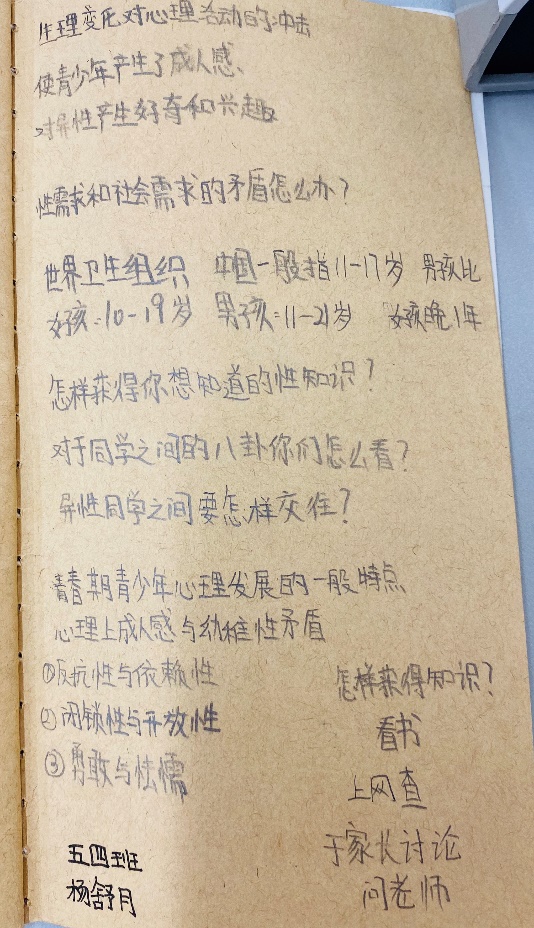 生理变化对心理活动的冲击
使青少年产生了成人感、
对异性产生好奇和兴趣
性需求和社会需求的矛盾怎么办?
世界卫生组织 中国一般指11-17岁 男孩比
女孩:10-19岁 男孩:11-21岁 女孩晚1年
怎样获得你想知道的性知识?
对于同学之间的八卦你们怎么看?
异性同学之间要怎样交往?
青春期青少年心理发展的一般特点
心理上成人感与幼稚性矛盾
①反抗性与依赖性
②闭锁性与开放性
③勇敢与怯懦
怎样获得知识?
看书
上网查
于家长讨论
问老师
五四班
杨舒月